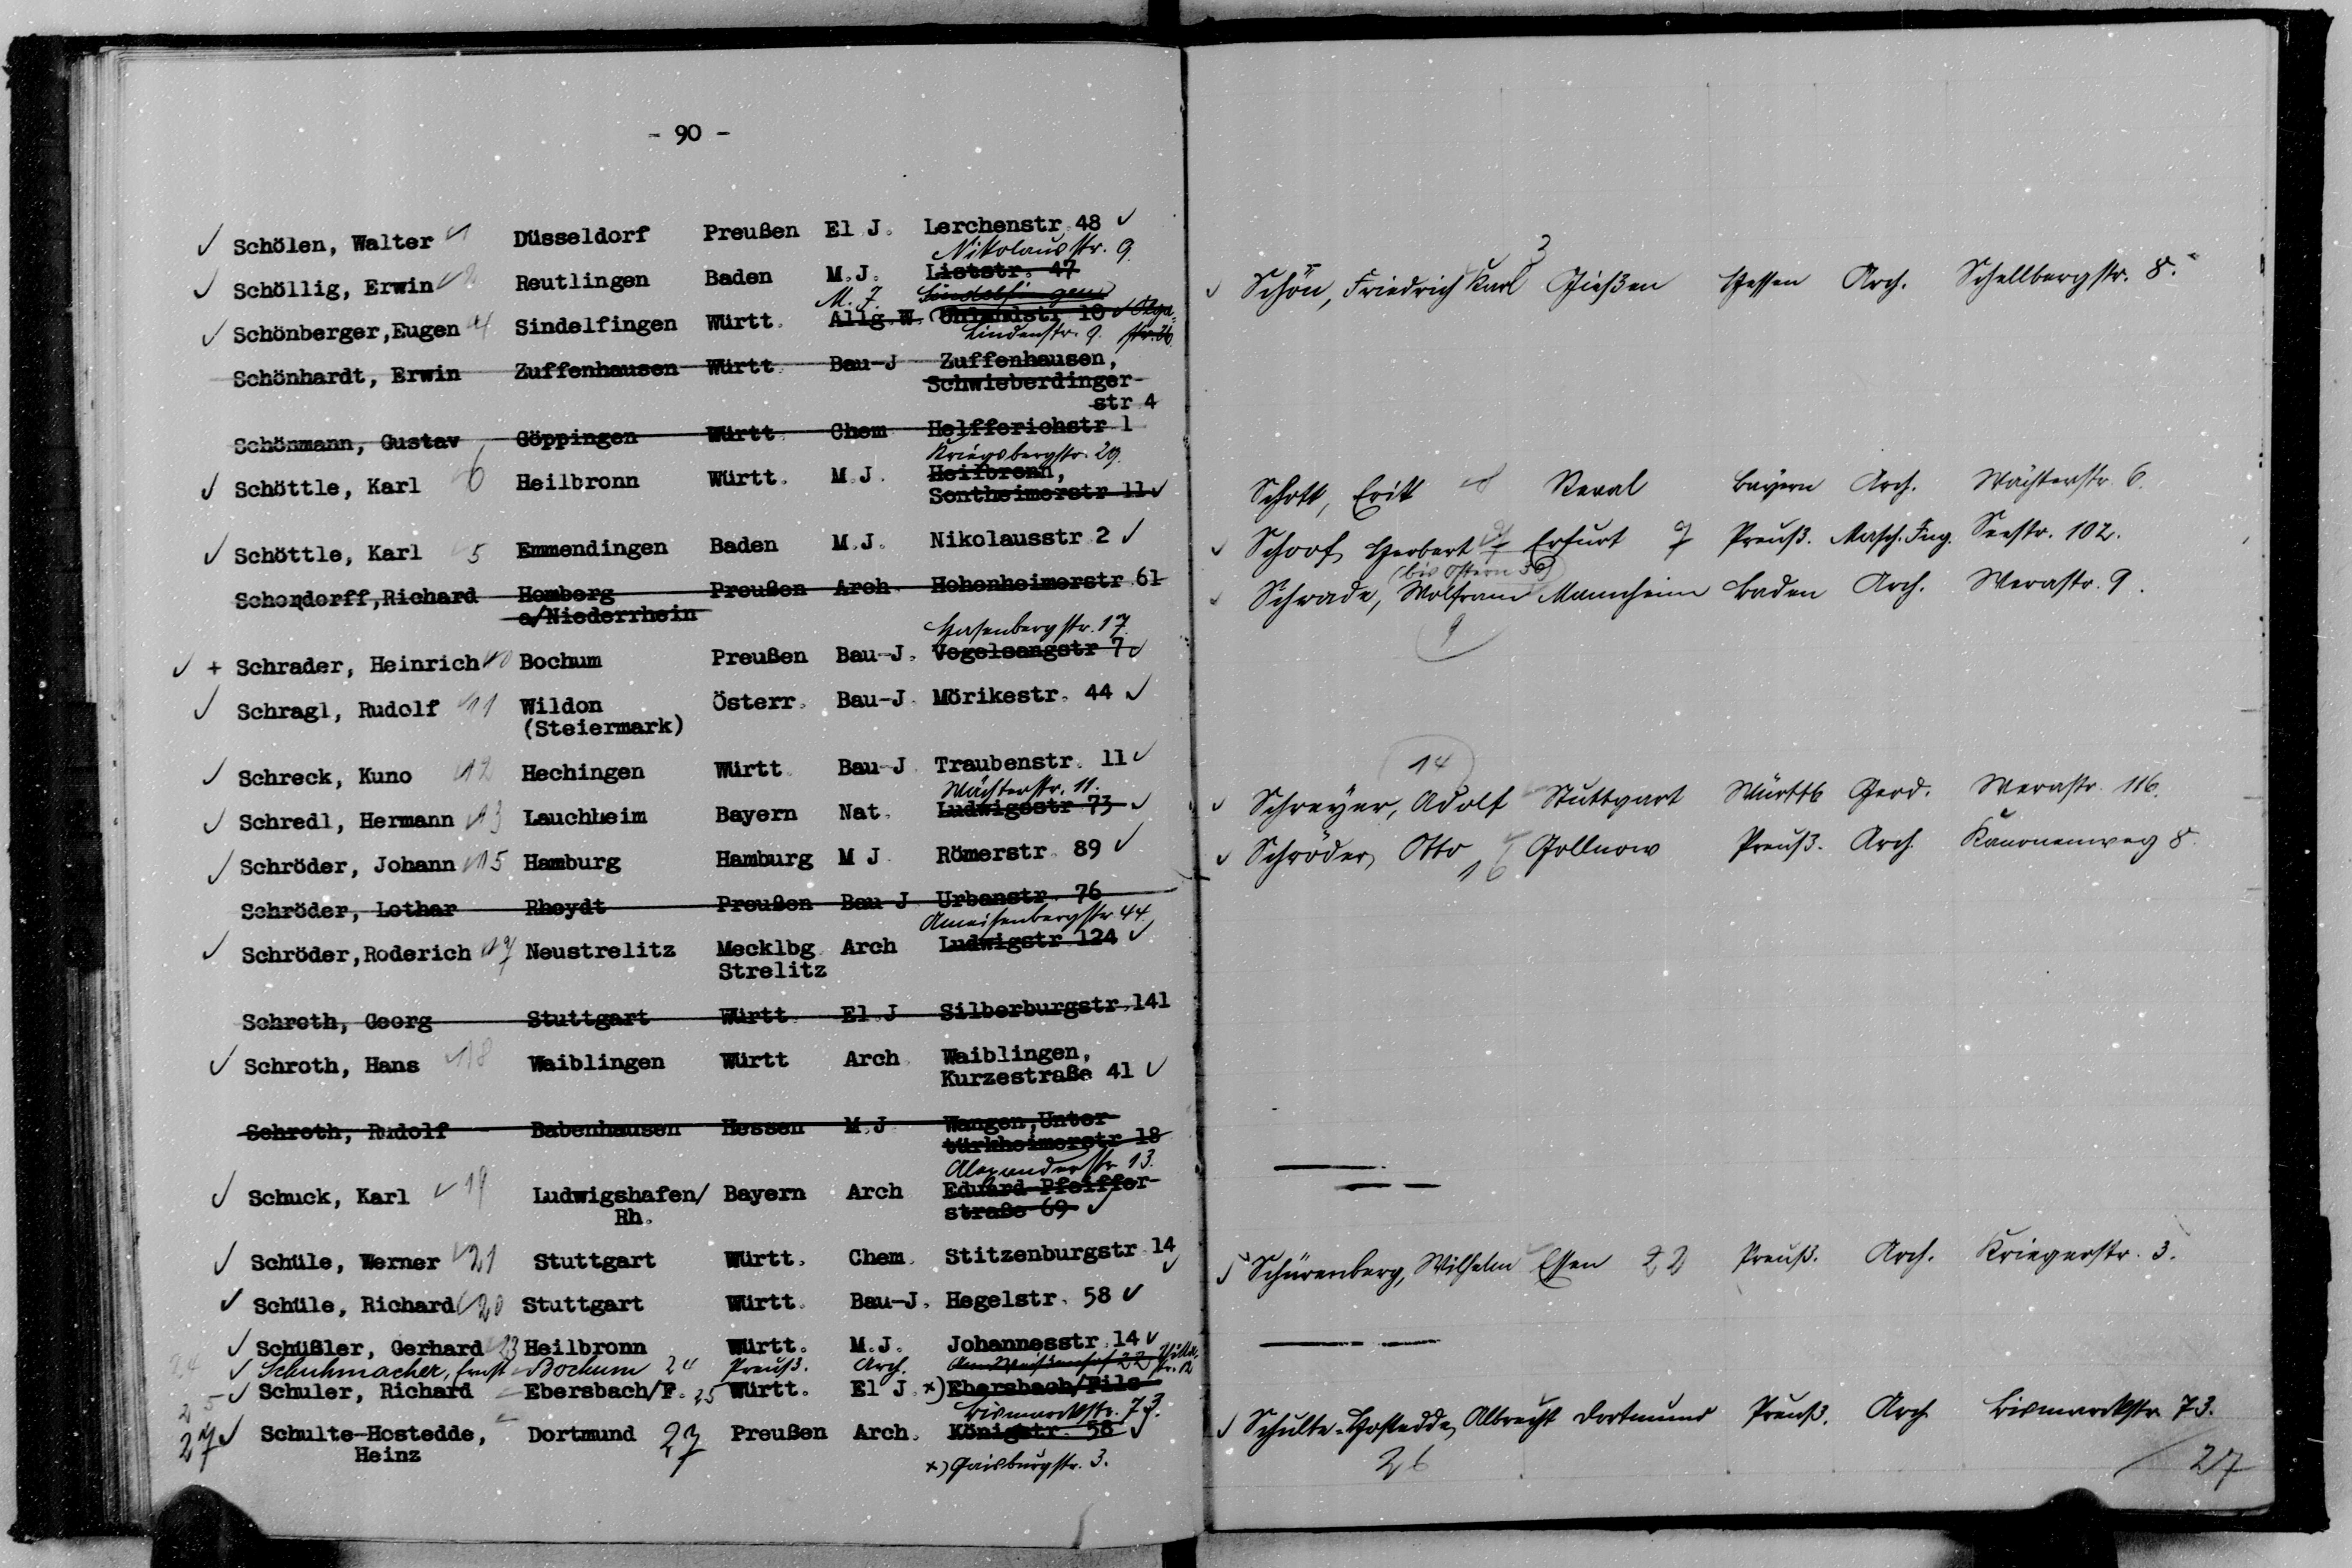 - 90 -
✓ Schölen, Walter ✓1 Düsseldorf Preußen El J. Lerchenstr 48 ✓
Nikolausstr. 9.
✓ Schöllig, Erwin ✓2 Reutlingen Baden M.J. Liststr. 47
M. J. Sindelfingen
✓ Schönberger,Eugen 4 Sindelfingen Württ. Allg.W. Uhlandstr 10 ✓ Olga-
Lindenstr. 9. str. 36
Schönhardt, Erwin Zuffenhausen Württ. Bau-J Zuffenhausen,
Schwieberdinger-
str 4
Schönmann, Gustav Göppingen Württ. Chem Helfferichstr 1
Kriegsbergstr. 29.
✓ Schöttle, Karl 6 Heilbronn Württ. M.J. Heilbronn,
Sontheimerstr 11 ✓
✓ Schöttle, Karl 5 Emmendingen Baden M.J. Nikolausstr 2 ✓
Schondorff,Richard Homberg Preußen Arch Hohenheimerstr 61
a/Niederrhein
Hasenbergstr. 17.
✓ + Schrader, Heinrich ✓10 Bochum Preußen Bau-J. Vogelsangstr 7 ✓
✓ Schragl, Rudolf ✓11 Wildon Österr. Bau-J. Mörikestr. 44 ✓
(Steiermark)
✓ Schreck, Kuno ✓12 Hechingen Württ. Bau-J Traubenstr. 11 ✓
Wächterstr. 11.
✓ Schredl, Hermann ✓13 Lauchheim Bayern Nat. Ludwigsstr 73 ✓
✓ Schröder, Johann ✓15 Hamburg Hamburg M J Römerstr. 89 ✓
Schröder, Lothar Rheydt Preußen Bau J Urbanstr. 76
Ameisenbergstr 44.
✓ Schröder,Roderich ✓17 Neustrelitz Mecklbg Arch Ludwigstr 124 ✓
Strelitz
Schroth, Georg Stuttgart Württ. El.J Silberburgstr.141
✓ Schroth, Hans ✓18 Waiblingen Württ Arch. Waiblingen,
Kurzestraße 41 ✓
Schroth, Rudolf Babenhausen Hessen M.J Wangen,Unter-
türkheimerstr 18
Alexanderstr. 13.
✓ Schuck, Karl ✓19 Ludwigshafen/ Bayern Arch Eduard Pfeiffer-
Rh. straße 69 ✓
✓ Schüle, Werner ✓21 Stuttgart Württ. Chem. Stitzenburgstr 14 ✓
✓ Schüle, Richard ✓20 Stuttgart Württ. Bau-J. Hegelstr. 58 ✓
✓ Schüßler, Gerhard ✓23 Heilbronn Württ. M.J. Johannesstr.14 ✓
24 ✓ Schuhmacher, Ernst Bochum 24 Preuß. Arch. Am Weißenhof 22 str. 12
25 ✓ Schuler, Richard Ebersbach/F. 25 Württ. El J. x) Ebersbach/Fils
Bismarckstr. 73.
27 ✓ Schulte-Hostedde, Dortmund 27 Preußen Arch. Königstr. 58 ✓
Heinz
x) Gaisburgstr. 3.
3
✓ Schön, Friedrich Karl Gießen Hessen Arch. Schellbergstr. 8.
Schott, Erik 8 Reval Bayern Arch. Wächterstr. 6.
✓ Schoof, Herbert 7 Erfurt 7 Preuß. Masch. Ing. Seestr. 102.
(bis Ostern 36)
✓ Schrade, Wolfram Mannheim Baden Arch. Werastr. 9.
9
14
✓ Schreyer, Adolf Stuttgart Württb Geod. Werastr. 116.
✓ Schröder, Otto Gollnow Preuß. Arch. Kanonenweg 8.
16
✓ Schürenberg, Wilhelm Essen 22 Preuß. Arch. Kriegerstr. 3.
✓ Schulte-Hostedde, Albrecht Dortmund Preuß. Arch Bismarckstr. 73.
26 27